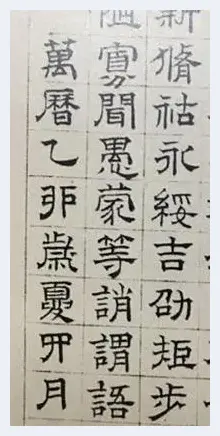 薪脩祜永綏吉劭矩步
陋寡聞愚蒙等誚謂語
萬曆乙卯歲夏四月